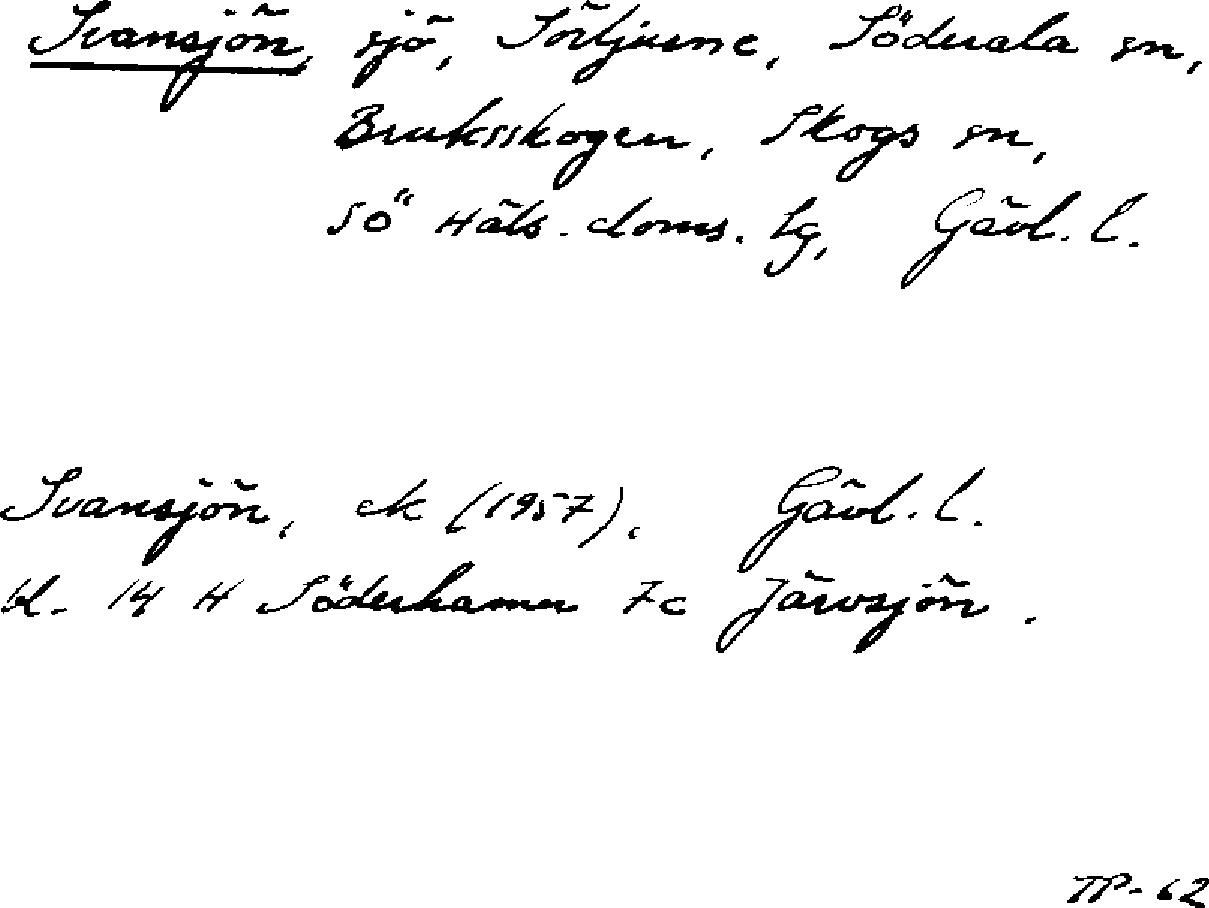 Svansjön, sjö, Sörljusne, Söderala sn,
Bruksskogen, Skogs sn,
Sö Häls. doms. lg, Gävl. l.
Svansjön, ek (1957). Gävl. l.
bl. 14 H Söderhamn 7c Järvsjön.
TP-62